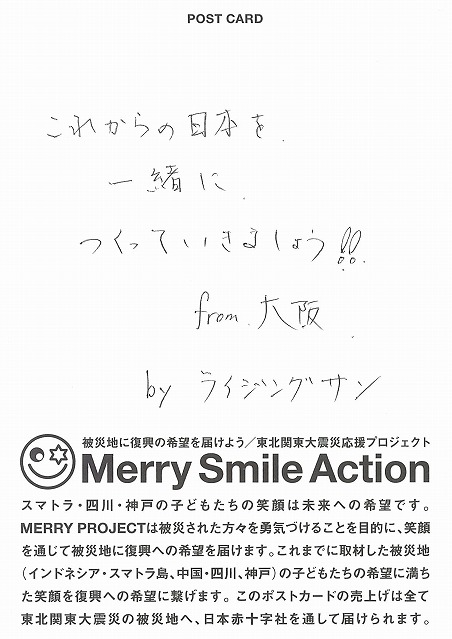 POST CARD
これからの日本を
一緒に
つくっていきましょう!!
from 大阪
by ライジングサン
被災地に復興の希望を届けよう／東北関東大震災応援プロジェクト
Merry Smile Action
スマトラ・四川・神戸の子どもたちの笑顔は未来への希望です。
MERRY PROJECTは被災された方々を勇気づけることを目的に、笑顔
を通じて被災地に復興への希望を届けます。これまでに取材した被災地
（インドネシア・スマトラ島、中国・四川、神戸）の子どもたちの希望に満ち
た笑顔を復興への希望に繋げます。このポストカードの売上げは全て
東北関東大震災の被災地へ、日本赤十字社を通して届けられます。